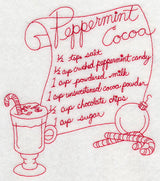 Peppermint
Cocoa
1/2 tsp salt
1/2 cup crushed peppermint candy
1 cup powdered milk
1 cup unsweetened cocoa powder
1/2 cup chocolate chips
1 cup sugar